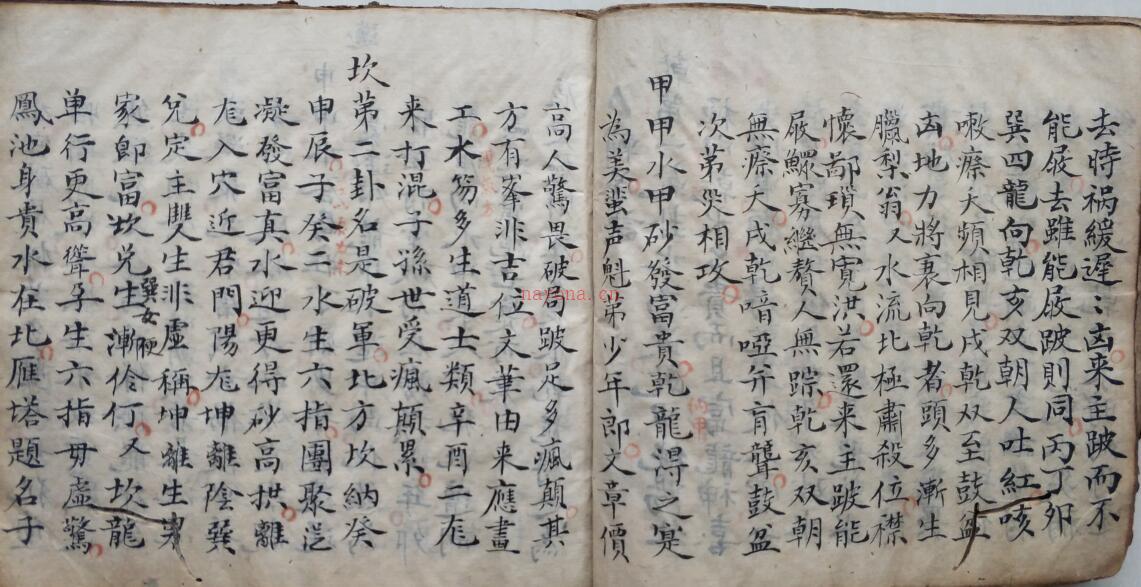 去時祸緩遲〻凶来主跛而不
能屐去雖能屐跛則同丙丁夘
巽四龍向乾亥双朝人吐紅咳
嗽瘵夭頻相見戌乾双至鼓盆
凶地力將衰向乾者頭多漸生
臘梨翁又水流北極肅殺位襟
懷鄙瑣無寬洪若還来主跛能
屐鰥寡繼贅人無踪乾亥双朝
無瘵夭戌乾喑啞并盲聾鼓盆
次第哭相攻
甲甲水甲砂發富貴乾龍淂之寔
為美蜚声魁第少年郎文章價
高人驚畏破局跛足多瘋顛其
方有峯非吉位文華由来應畫
工水笏多生道士類辛酉二尨
来打混子孫世受瘋顛累
坎第二卦名是破軍北方坎納癸
申辰子癸二水生六指團聚
凝發富真水迎更得砂高拱離
尨入穴近君門陽尨坤離陰巽
兌定主雙生非虛稱坤離生男
巽女硬
家即富坎兌生漸伶仃又坎龍
単行更高聳孕生六指毋虛驚
鳳池身貴水在北雁塔題名子
nayona.cn